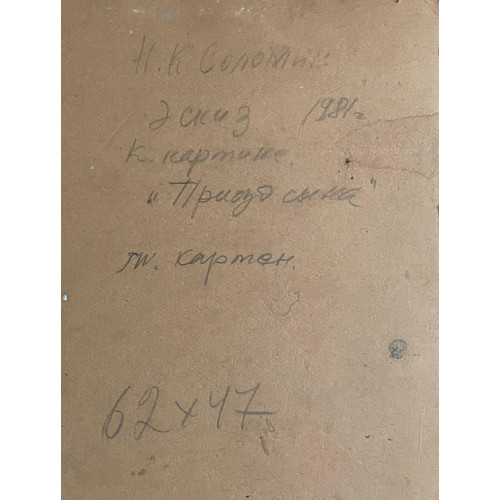 Н.К Соломин
Эскиз 1981г
К. картине.
„Приезд сына"
тш. картон.
62х47